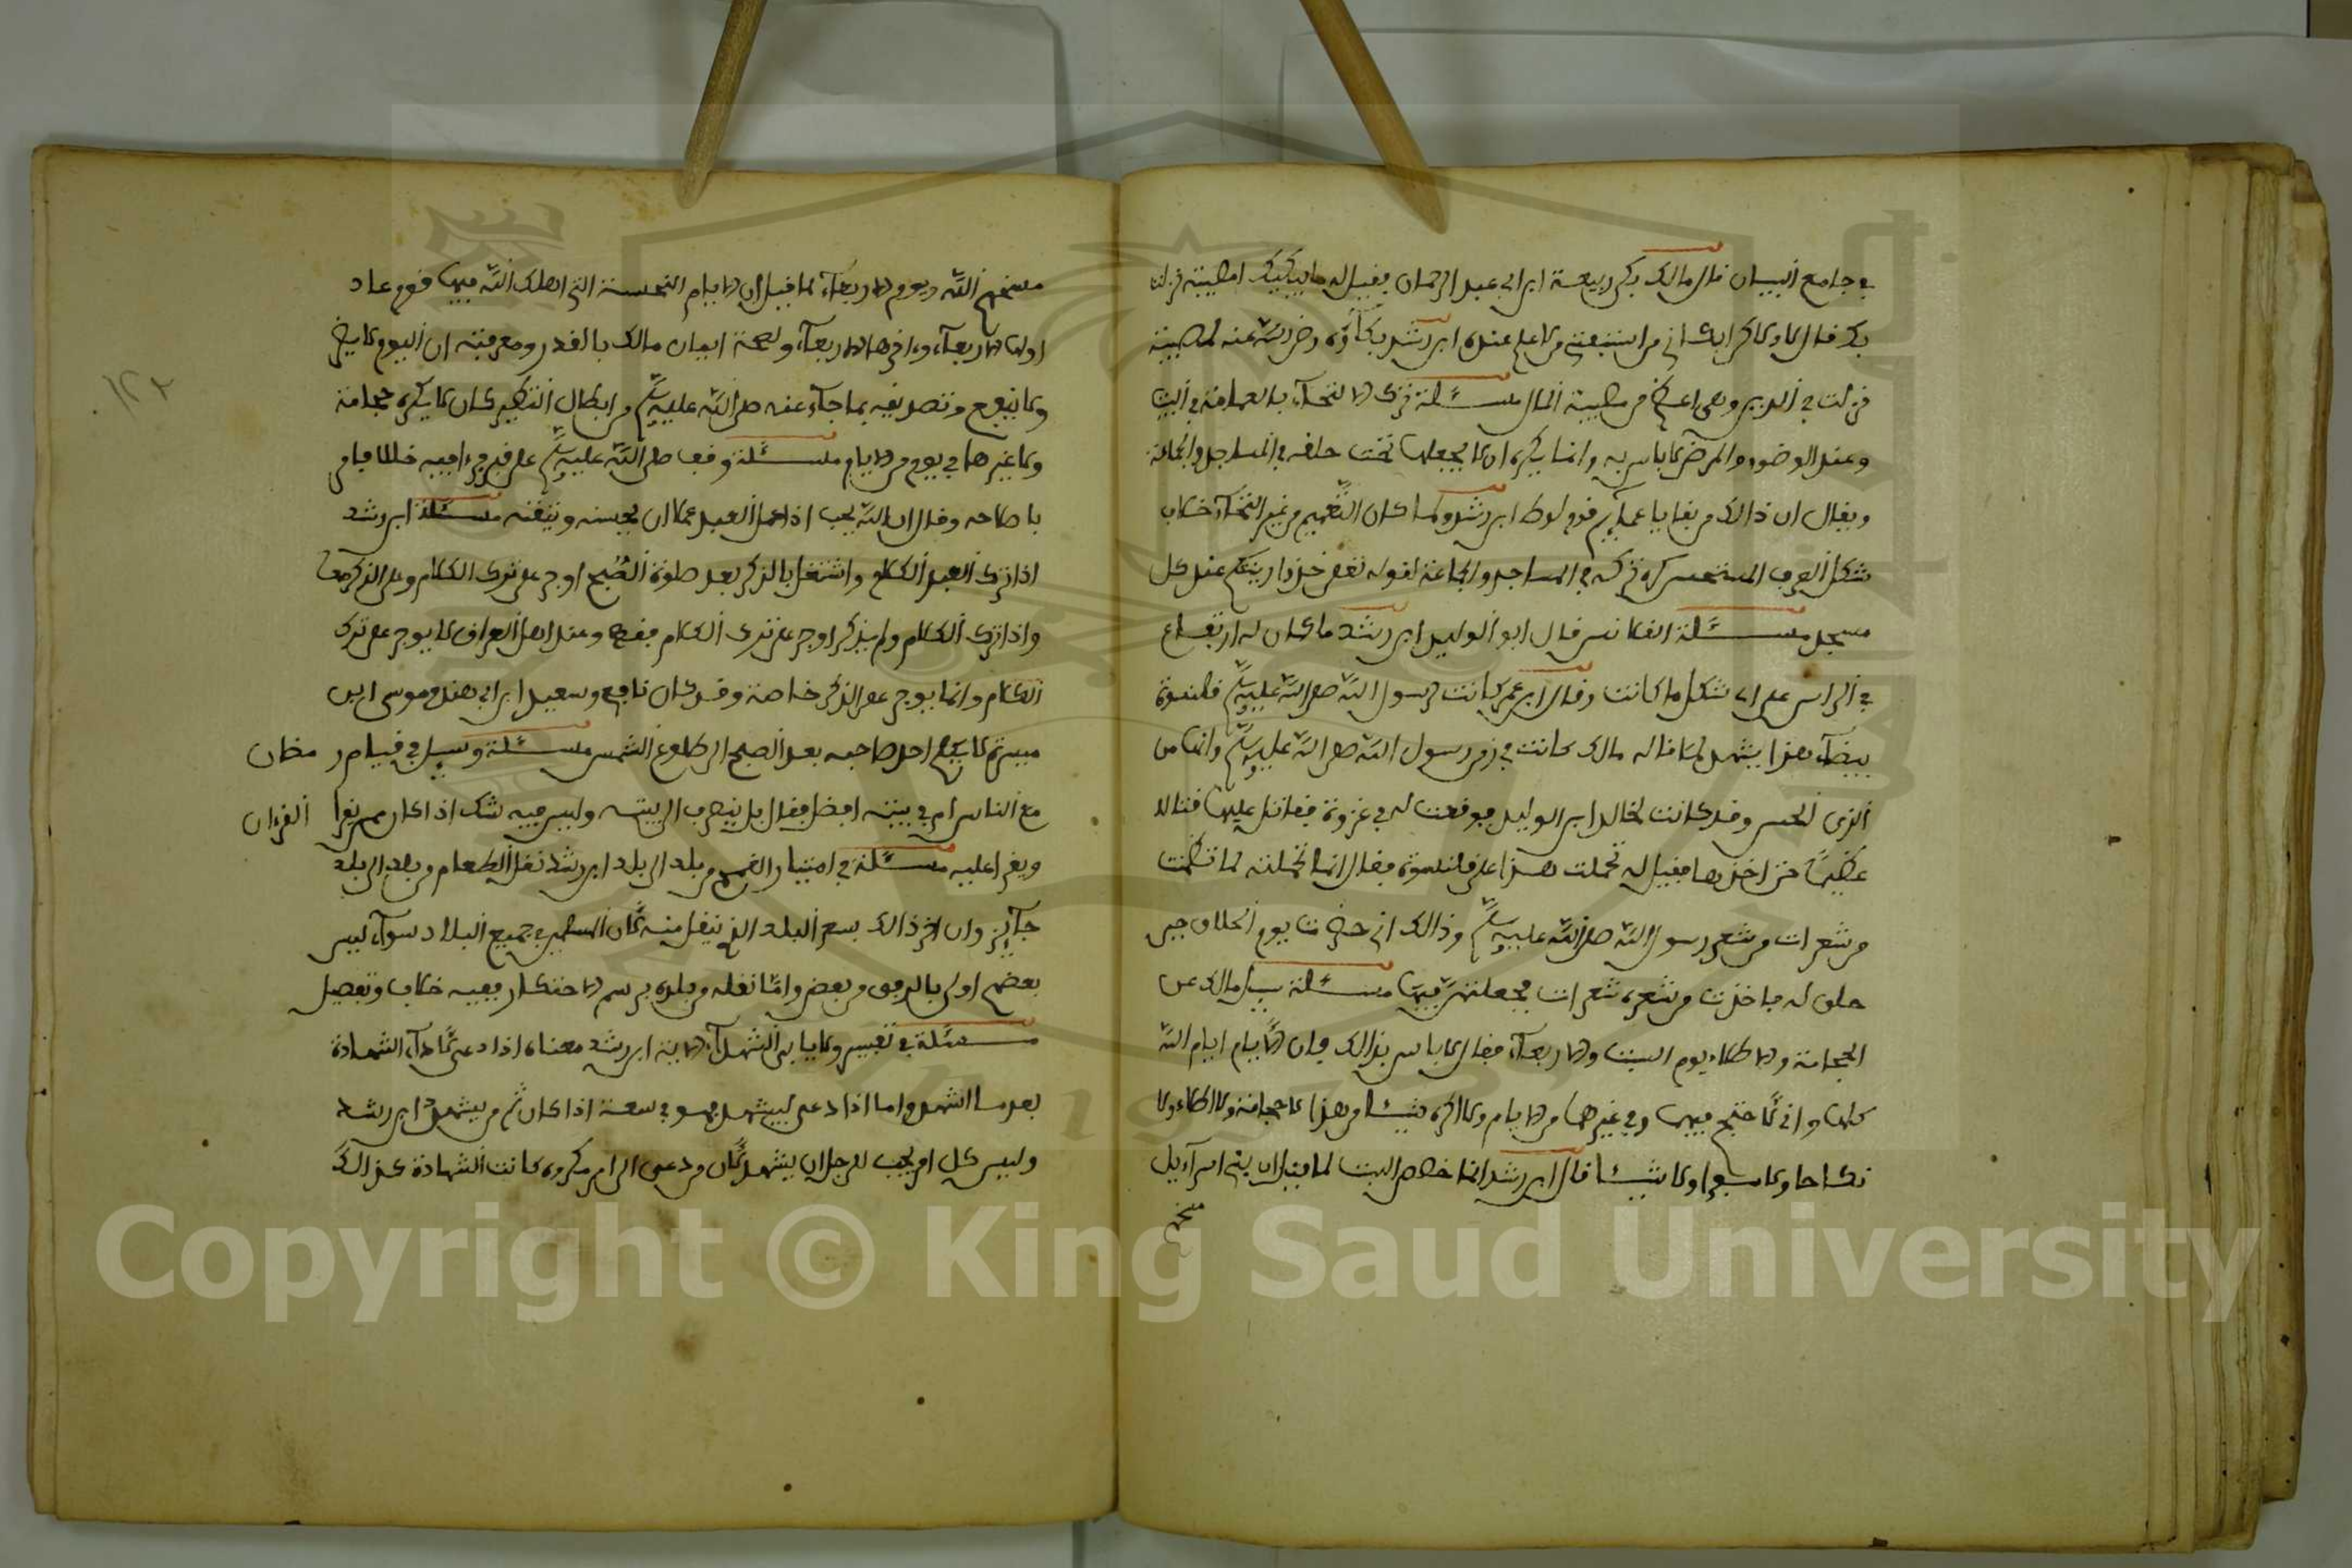 في جامع البيان قال مالك بكى ربيعة ابن ابي عبد الرحمان فقيل له ما يبكيك امصيبة نزلت
بك فقال لا ولاكن ابكاني من استفتي من لا علم عنده ابن رشد بكاؤه رضي الله عنه لمصيبة
نزلت في الدين وهي اعظم من مصيبة المال مسئلة ترك الالتحاء بالعمامة في البيت
وعند الوضوء والمرض لا باس به وانما يكره ان لا يجعلها تحت حلقه في المساجد والجماعة
ويقال ان ذالك من بقايا عمائم قوم لوط ابن رشد ولما كان التعميم من غير التحاء خلاف
شكل العرب المستحسن كره تركه في المساجد والجماعة لقوله تعلى خذوا زينتكم عند كل
مسجد مسئلة القلانس قال ابو الوليد ابن رشد ما كان له ارتفاع
في الراس على اي شكل ما كانت وقال ابن عمر كانت لرسول الله صلى الله عليه وسلم قلنسوة
بيضاء هذا يشهد لما قاله مالك كانت في زمن رسول الله صلى الله عليه وسلم وانها من
الزي الحسن وقد كانت لخالد ابن الوليد فوقعت له في غزوة فقاتل عليها قتالا
عظيما حتى اخذها فقيل له تحملت هذا على قلنسوة فقال انما تحملته لما تضمنت
من شعرات من شعر رسول الله صلى الله عليه وسلم وذالك اني حضرت يوم الحلاق حين
حلق له فاخذت من شعره شعرات فجعلتهن فيها مسئلة سيل مالك عن
الحجامة والاطلاء يوم السبت والاربعاء فقال لا باس بذالك فان الايام ايام الله
كلها واني لاحتجم فيها وفي غيرها من الايام ولا اكره شيئا من هذا لا حجامة ولا اطلاء ولا
نكاحا ولا سفرا ولا شيئا قال ابن رشد انما خصص السبت لما قيل ان بني اسرآئيل
مسخهم
مسخهم الله ويوم الاربعاء لما قيل ان الايام النحسة التي اهلك الله فيها قوم عاد
اولها الاربعاء وءاخرها الاربعاء ولصحة ايمان مالك بالقدر ومعرفته ان اليوم لا يضر
ولا ينفع وتصديقه بما جاء عنه صلى الله عليه وسلم من ابطال التطير كان لا يكره حجامة
ولا غيرها في يوم من الايام مسئلة وقف صلى الله عليه وسلم على قبر فرءا فيه خللا فامر
باصلاحه وقال ان الله يحب اذا عمل العبد عملا ان يحسنه ويتقنه مسئلة ابن رشد
اذا ترك العبد الكلام واشتغل بالذكر بعد صلوة الصبح اوجر على ترك الكلام وعلى الذكر معا
واذا ترك الكلام ولم يذكر اوجر على ترك الكلام فقط وعند اهل العراق لا يوجر على ترك
الكلام وانما يوجر على الذكر خاصة وقد كان نافع وسعيد ابن ابي هند وموسى ابن
ميسرة لا يكلم احد صاحبه بعد الصبح الى طلوع الشمس مسئلة وسيل في قيام رمضان
مع الناس ام في بيته افضل فقال بل ينصرف الى بيته وليس فيه شك اذا كان ممن يقرا القرءان
ويقرا عليه مسئلة في امتيار القمح من بلد الى بلد ابن رشد نقل الطعام من بلد الى بلد
جائز وان اضر ذالك بسعر البلد الذي ينقل منه لان المسلمين في جميع البلاد سوآء ليس
بعضهم اولى بالرفق من بعض واما نقله من بلده برسم الاحتكار ففيه خلاف وتفصيل
مسئلة في تفسير ولا ياب الشهدآء الاية ابن رشد معناه اذا دعي لادآء الشهادة
بعد ما اشهد واما اذا دعي ليشهد فهو في سعة اذا كان ثم من يشهد ابن رشد
وليس كل امر يجب للرجل ان يشهد لان من دعي الى امر مكروه كانت الشهادة كذالك